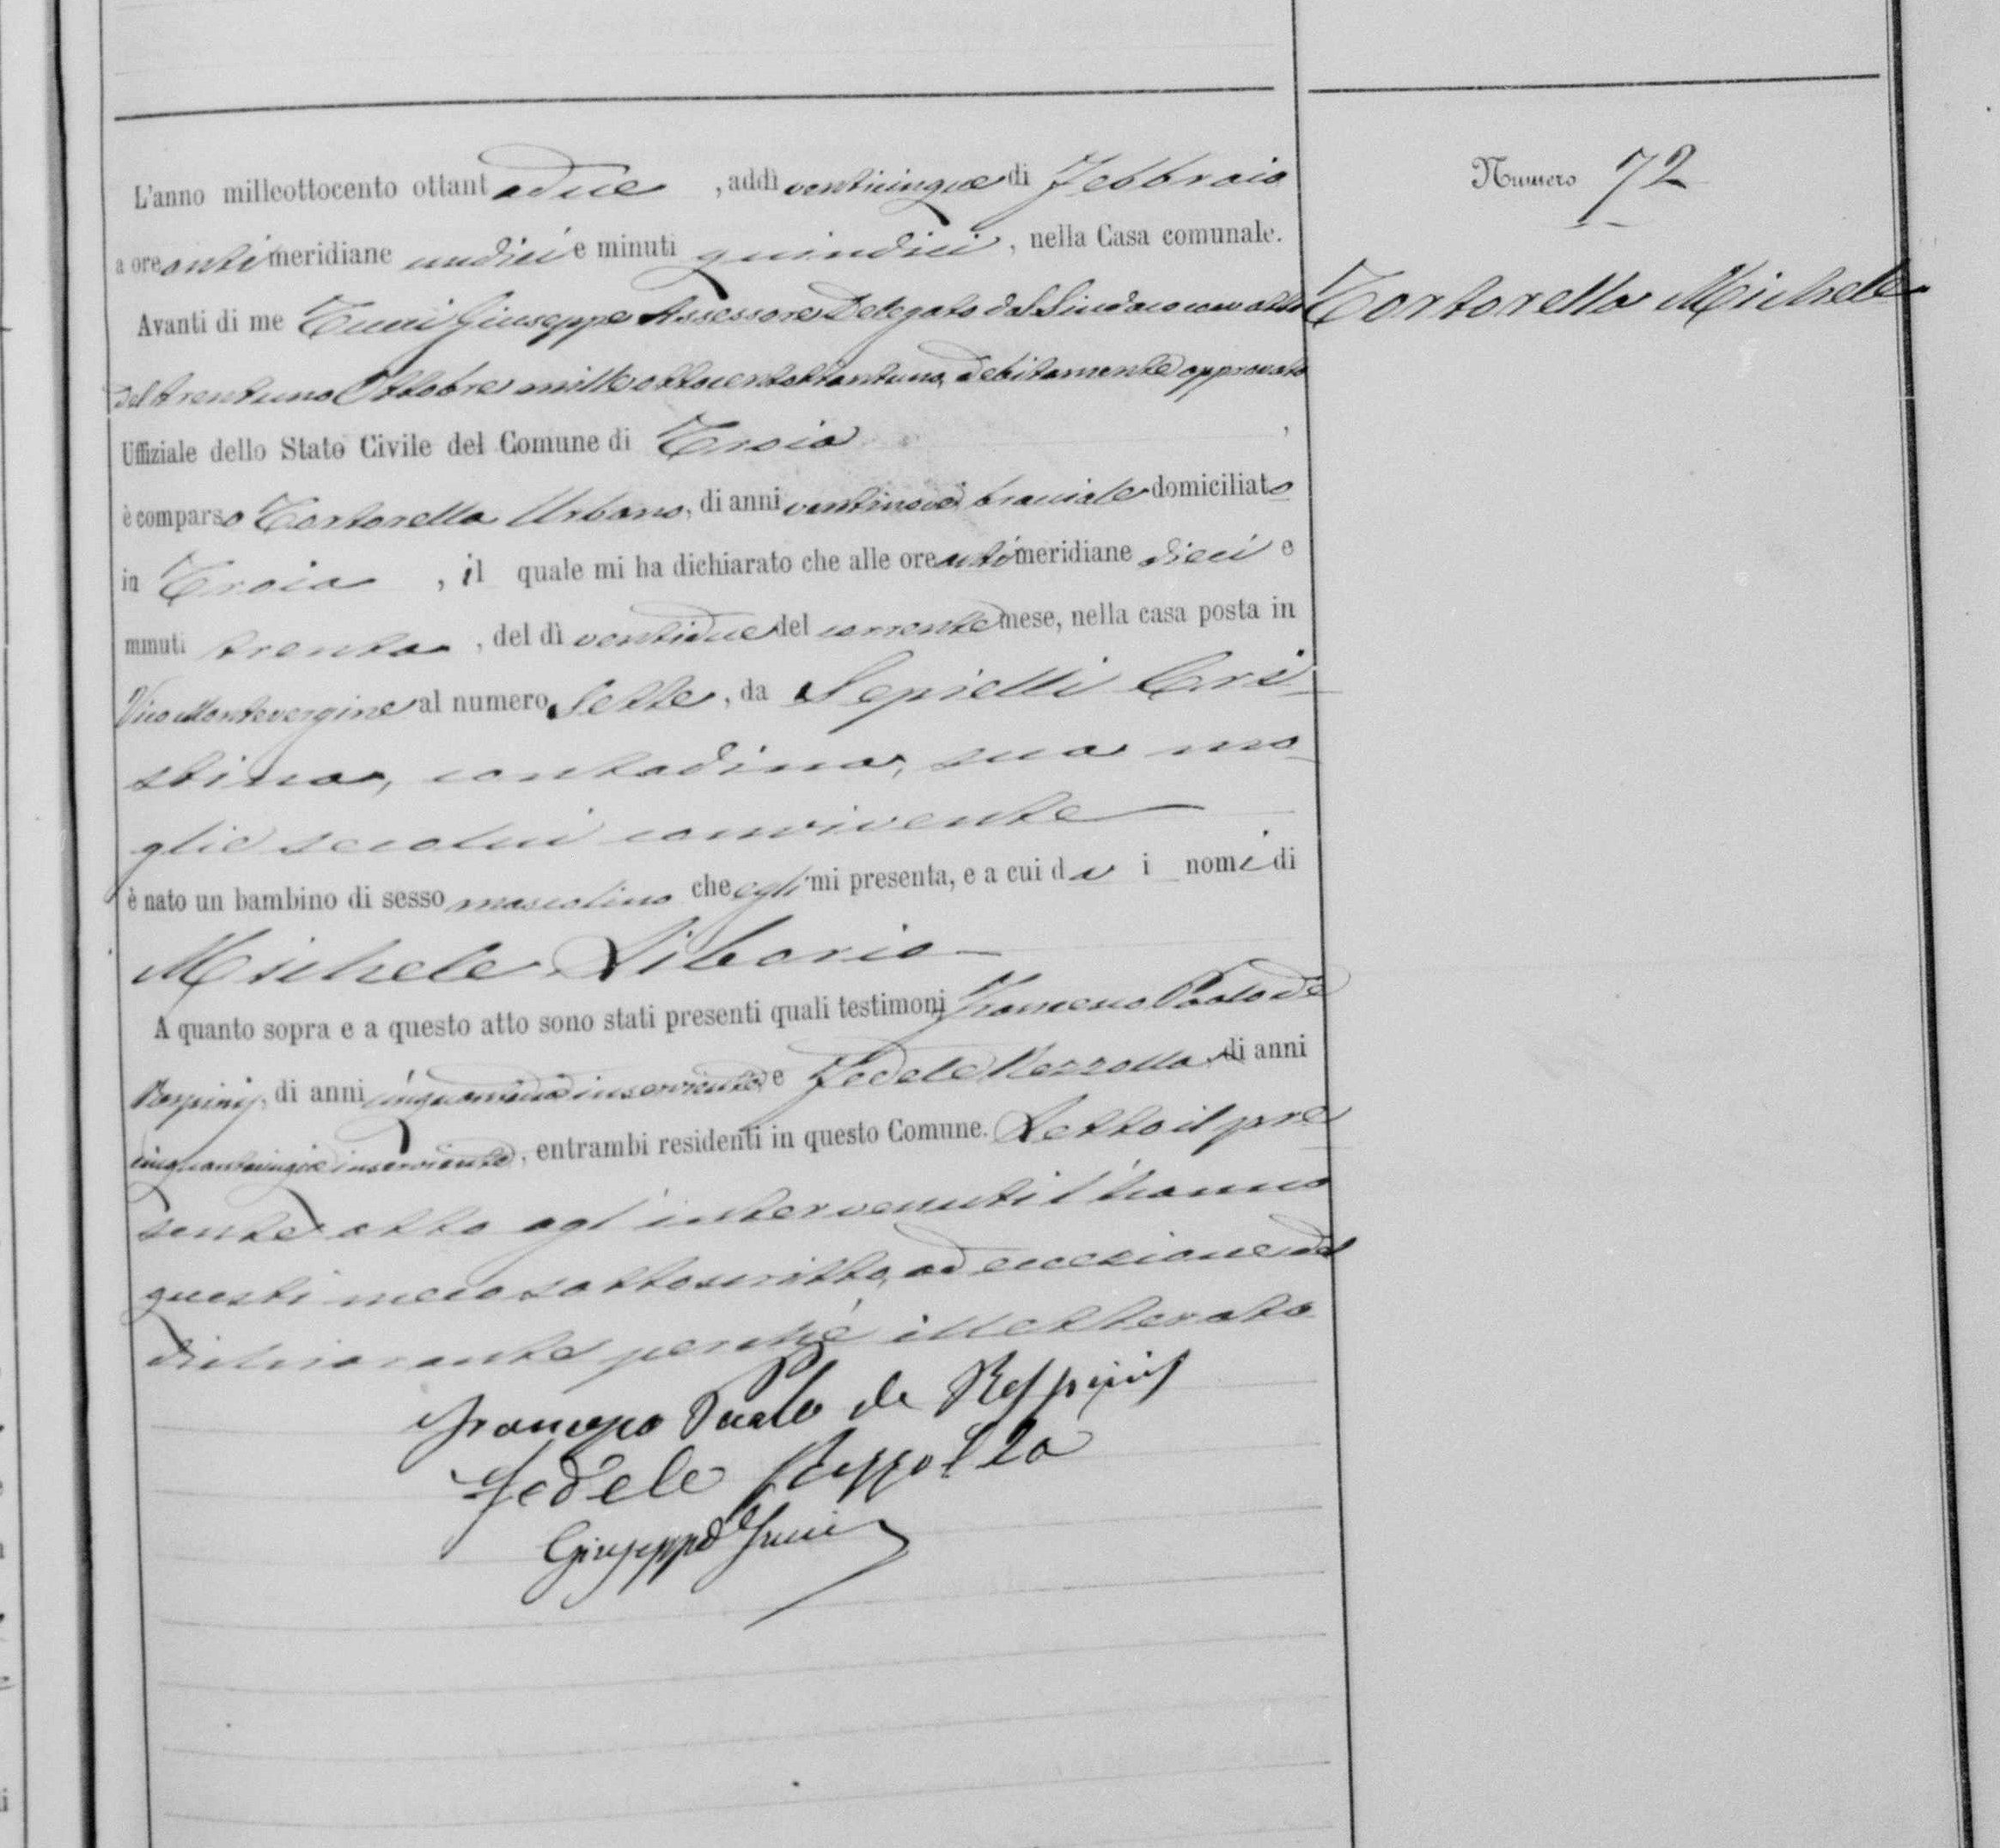 Numero 72
Tortorella Michele
L'anno milleottocento ottantadue, addì venticinque di Febbraio
a ore antimeridiane undici e minuti quindici, nella Casa comunale.
Avanti di me Tucci Giuseppe Assessore Delegato dal Sindaco con atto
del trentuno Ottobre milleottocentottantuno, debitamente approvato
Uffiziale dello Stato Civile del Comune di Troia,
è comparso Tortorella Urbano, di anni ventinove, bracciale domiciliato
in Troia, il quale mi ha dichiarato che alle ore antimeridiane dieci e
minuti trenta, del dì ventidue del corrente mese, nella casa posta in
Vico Montevergine al numero Sette, da Sepielli Cri-
stina, contadina, sua mo-
glie secolui convivente
è nato un bambino di sesso mascolino che egli mi presenta, e a cui da i nomi di
Michele Liborio
A quanto sopra e a questo atto sono stati presenti quali testimoni Francesco Paolo de
di anni inserviente, e Fedele Rezzolla di anni
cinquantacinque inserviente, entrambi residenti in questo Comune. Letto il pre
sente atto agl'intervenuti l'hanno
questi meco sottoscritto, ad eccezione del
dichiarante perché illetterato
Francesco Paolo de
Fedele Rezzolla
Giuseppe Tucci